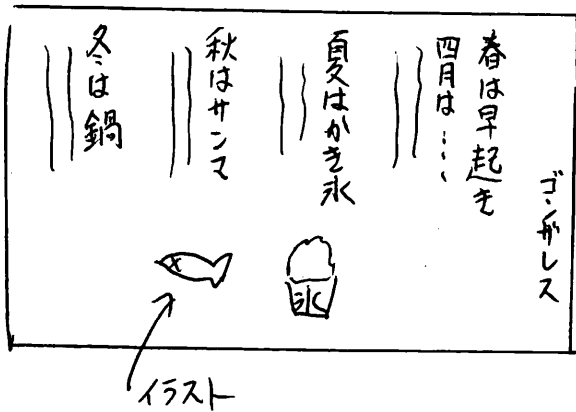 春は早起き
四月は……
夏はかき氷
秋はサンマ
冬は鍋
氷
イラスト